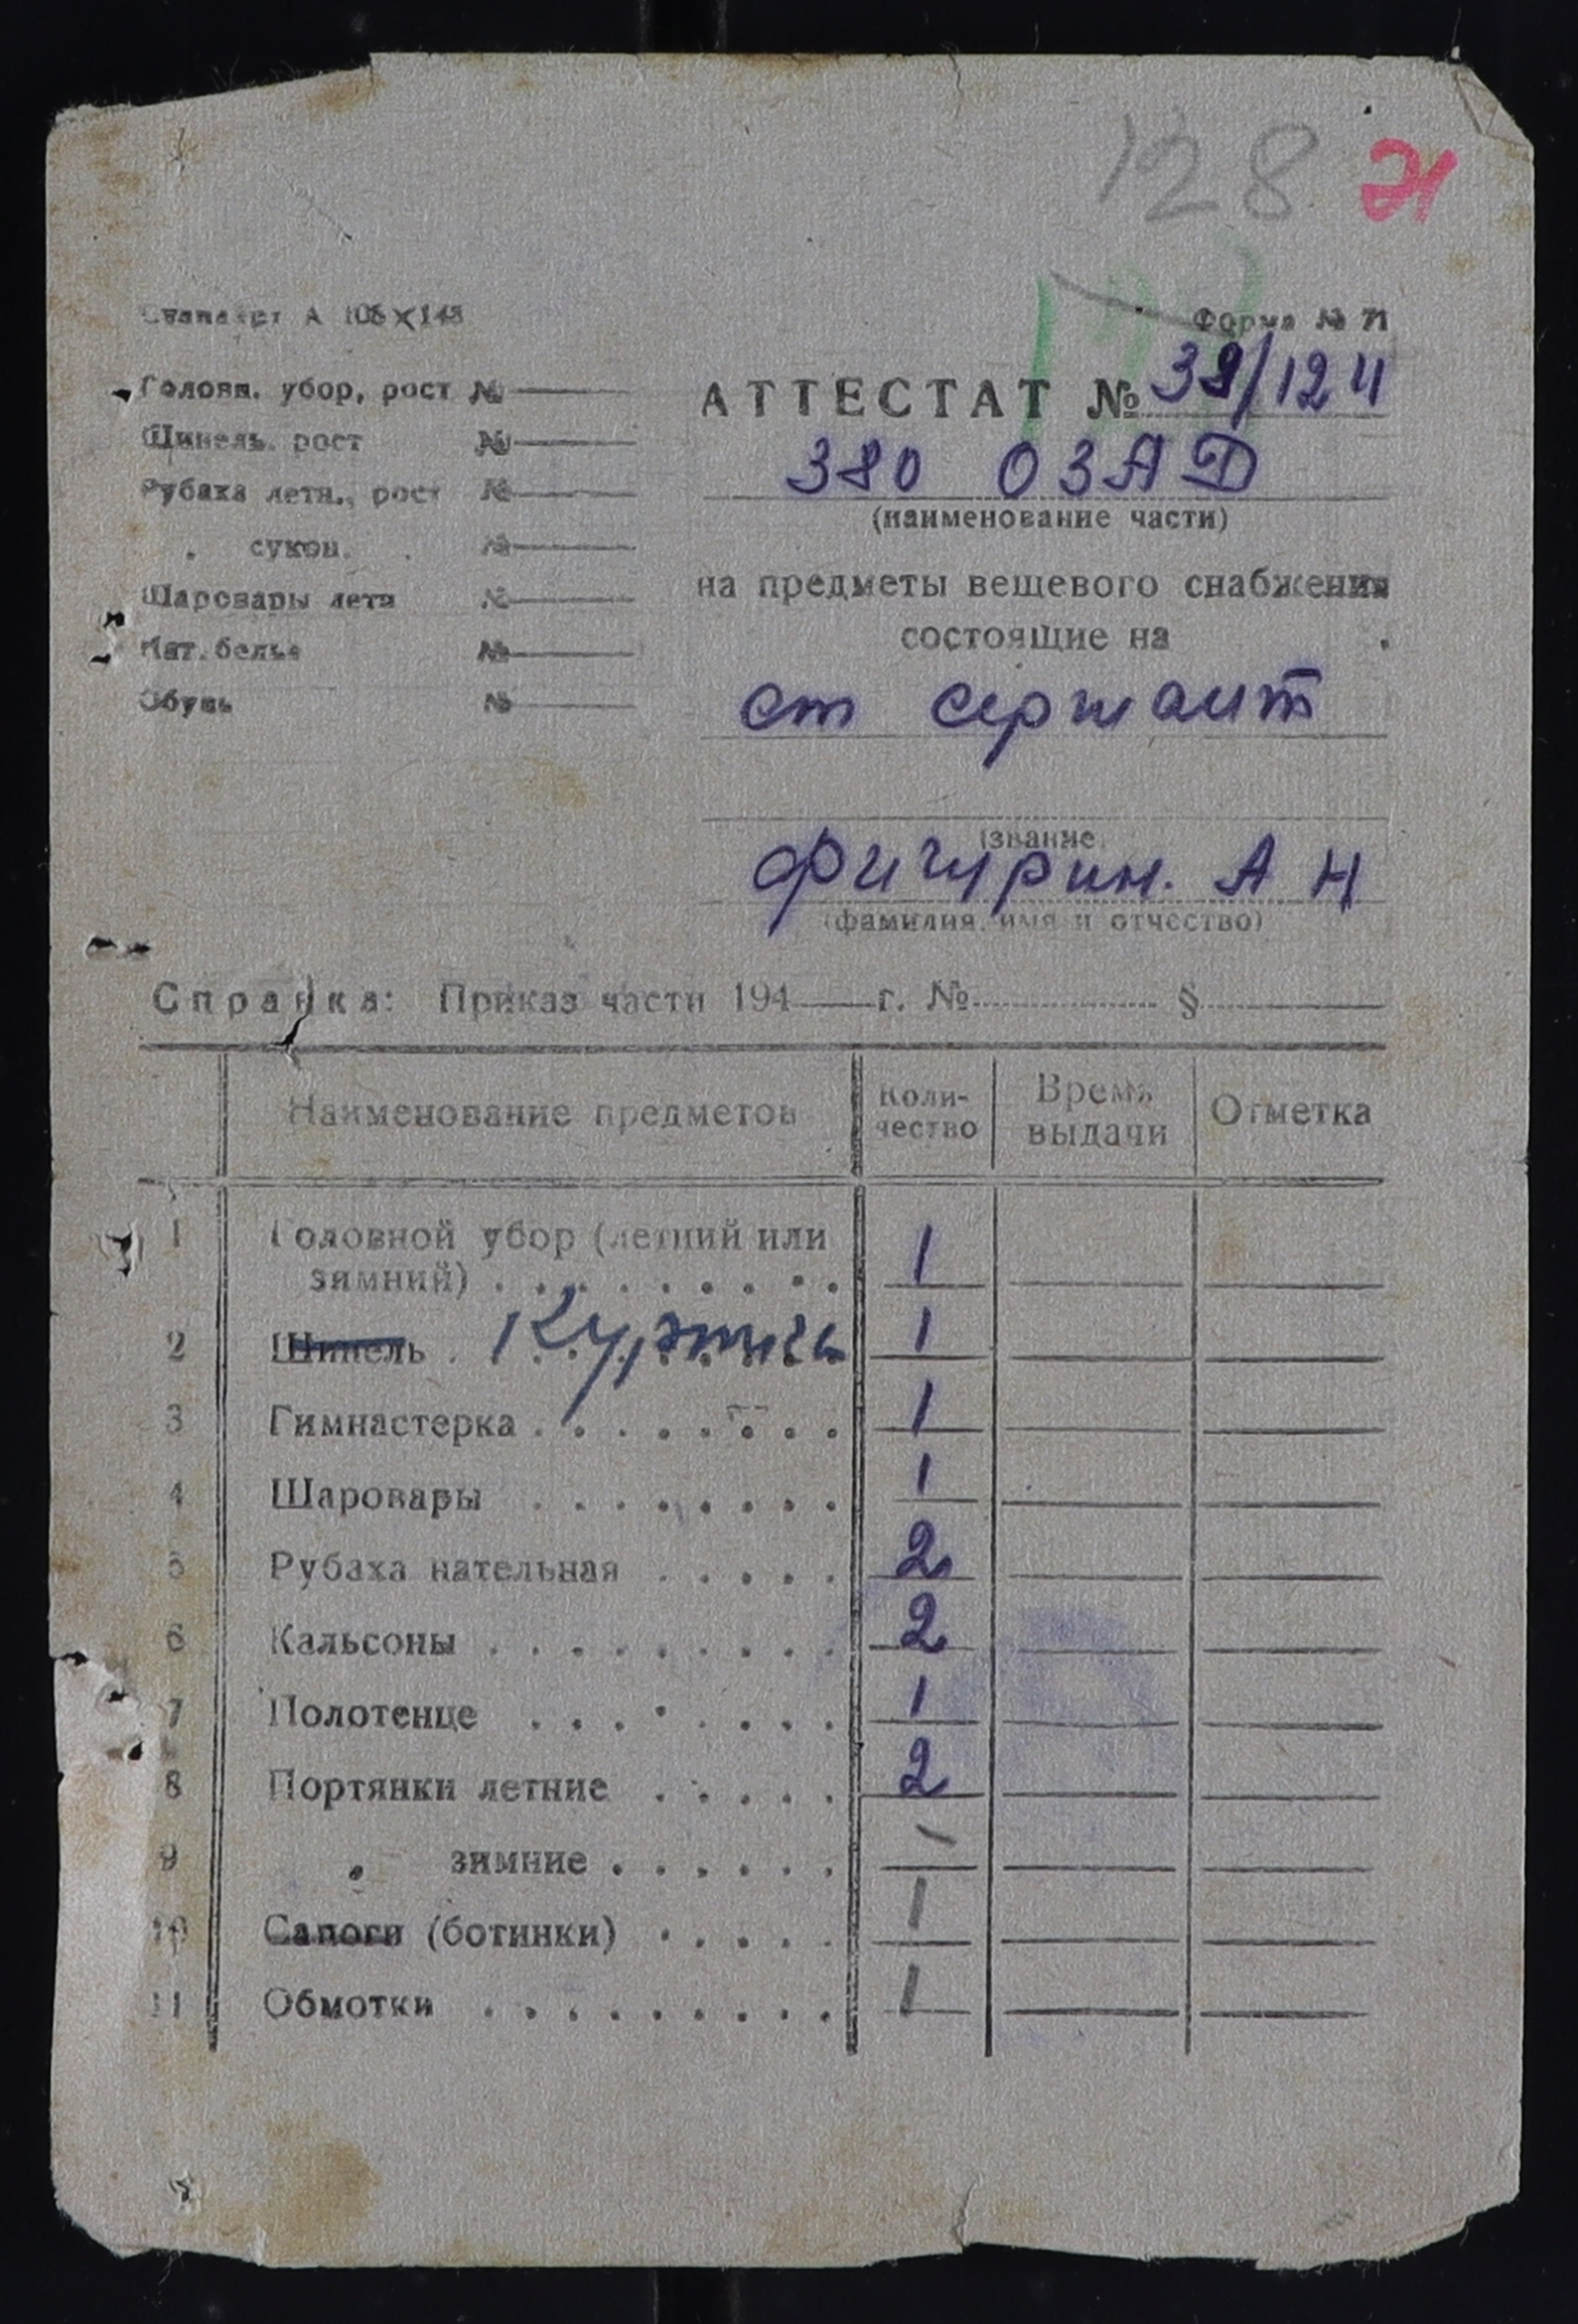 128 21
Стандарт А 105×148
Форма № 71
Головн. убор, рост №
Шинель. рост №
Рубаха летн., рост №
„ сукон. „ №
Шаровары летн №
Нат. белье №
Обувь №
АТТЕСТАТ № 39/124
380 ОЗАД
(наименование части)
на предметы вещевого снабжения
состоящие на
ст сержант
(звание)
Фигурин. А Н
(фамилия, имя и отчество)
Справка: Приказ части 194 г. № §
Наименование предметов Коли- Время Отметка
чество выдачи
1 Головной убор (летний или
зимний) . . . . . . . . . 1
2 Шинель . Куртка 1
3 Гимнастерка . . . . . . . . 1
4 Шаровары . . . . . . . . 1
5 Рубаха нательная . . . . . 2
6 Кальсоны . . . . . . . . . 2
7 Полотенце . . . . . . . . 1
8 Портянки летние . . . . . 2
9 „ зимние . . . . . . –
10 Сапоги (ботинки) . . . . . 1
11 Обмотки . . . . . . . . . 1